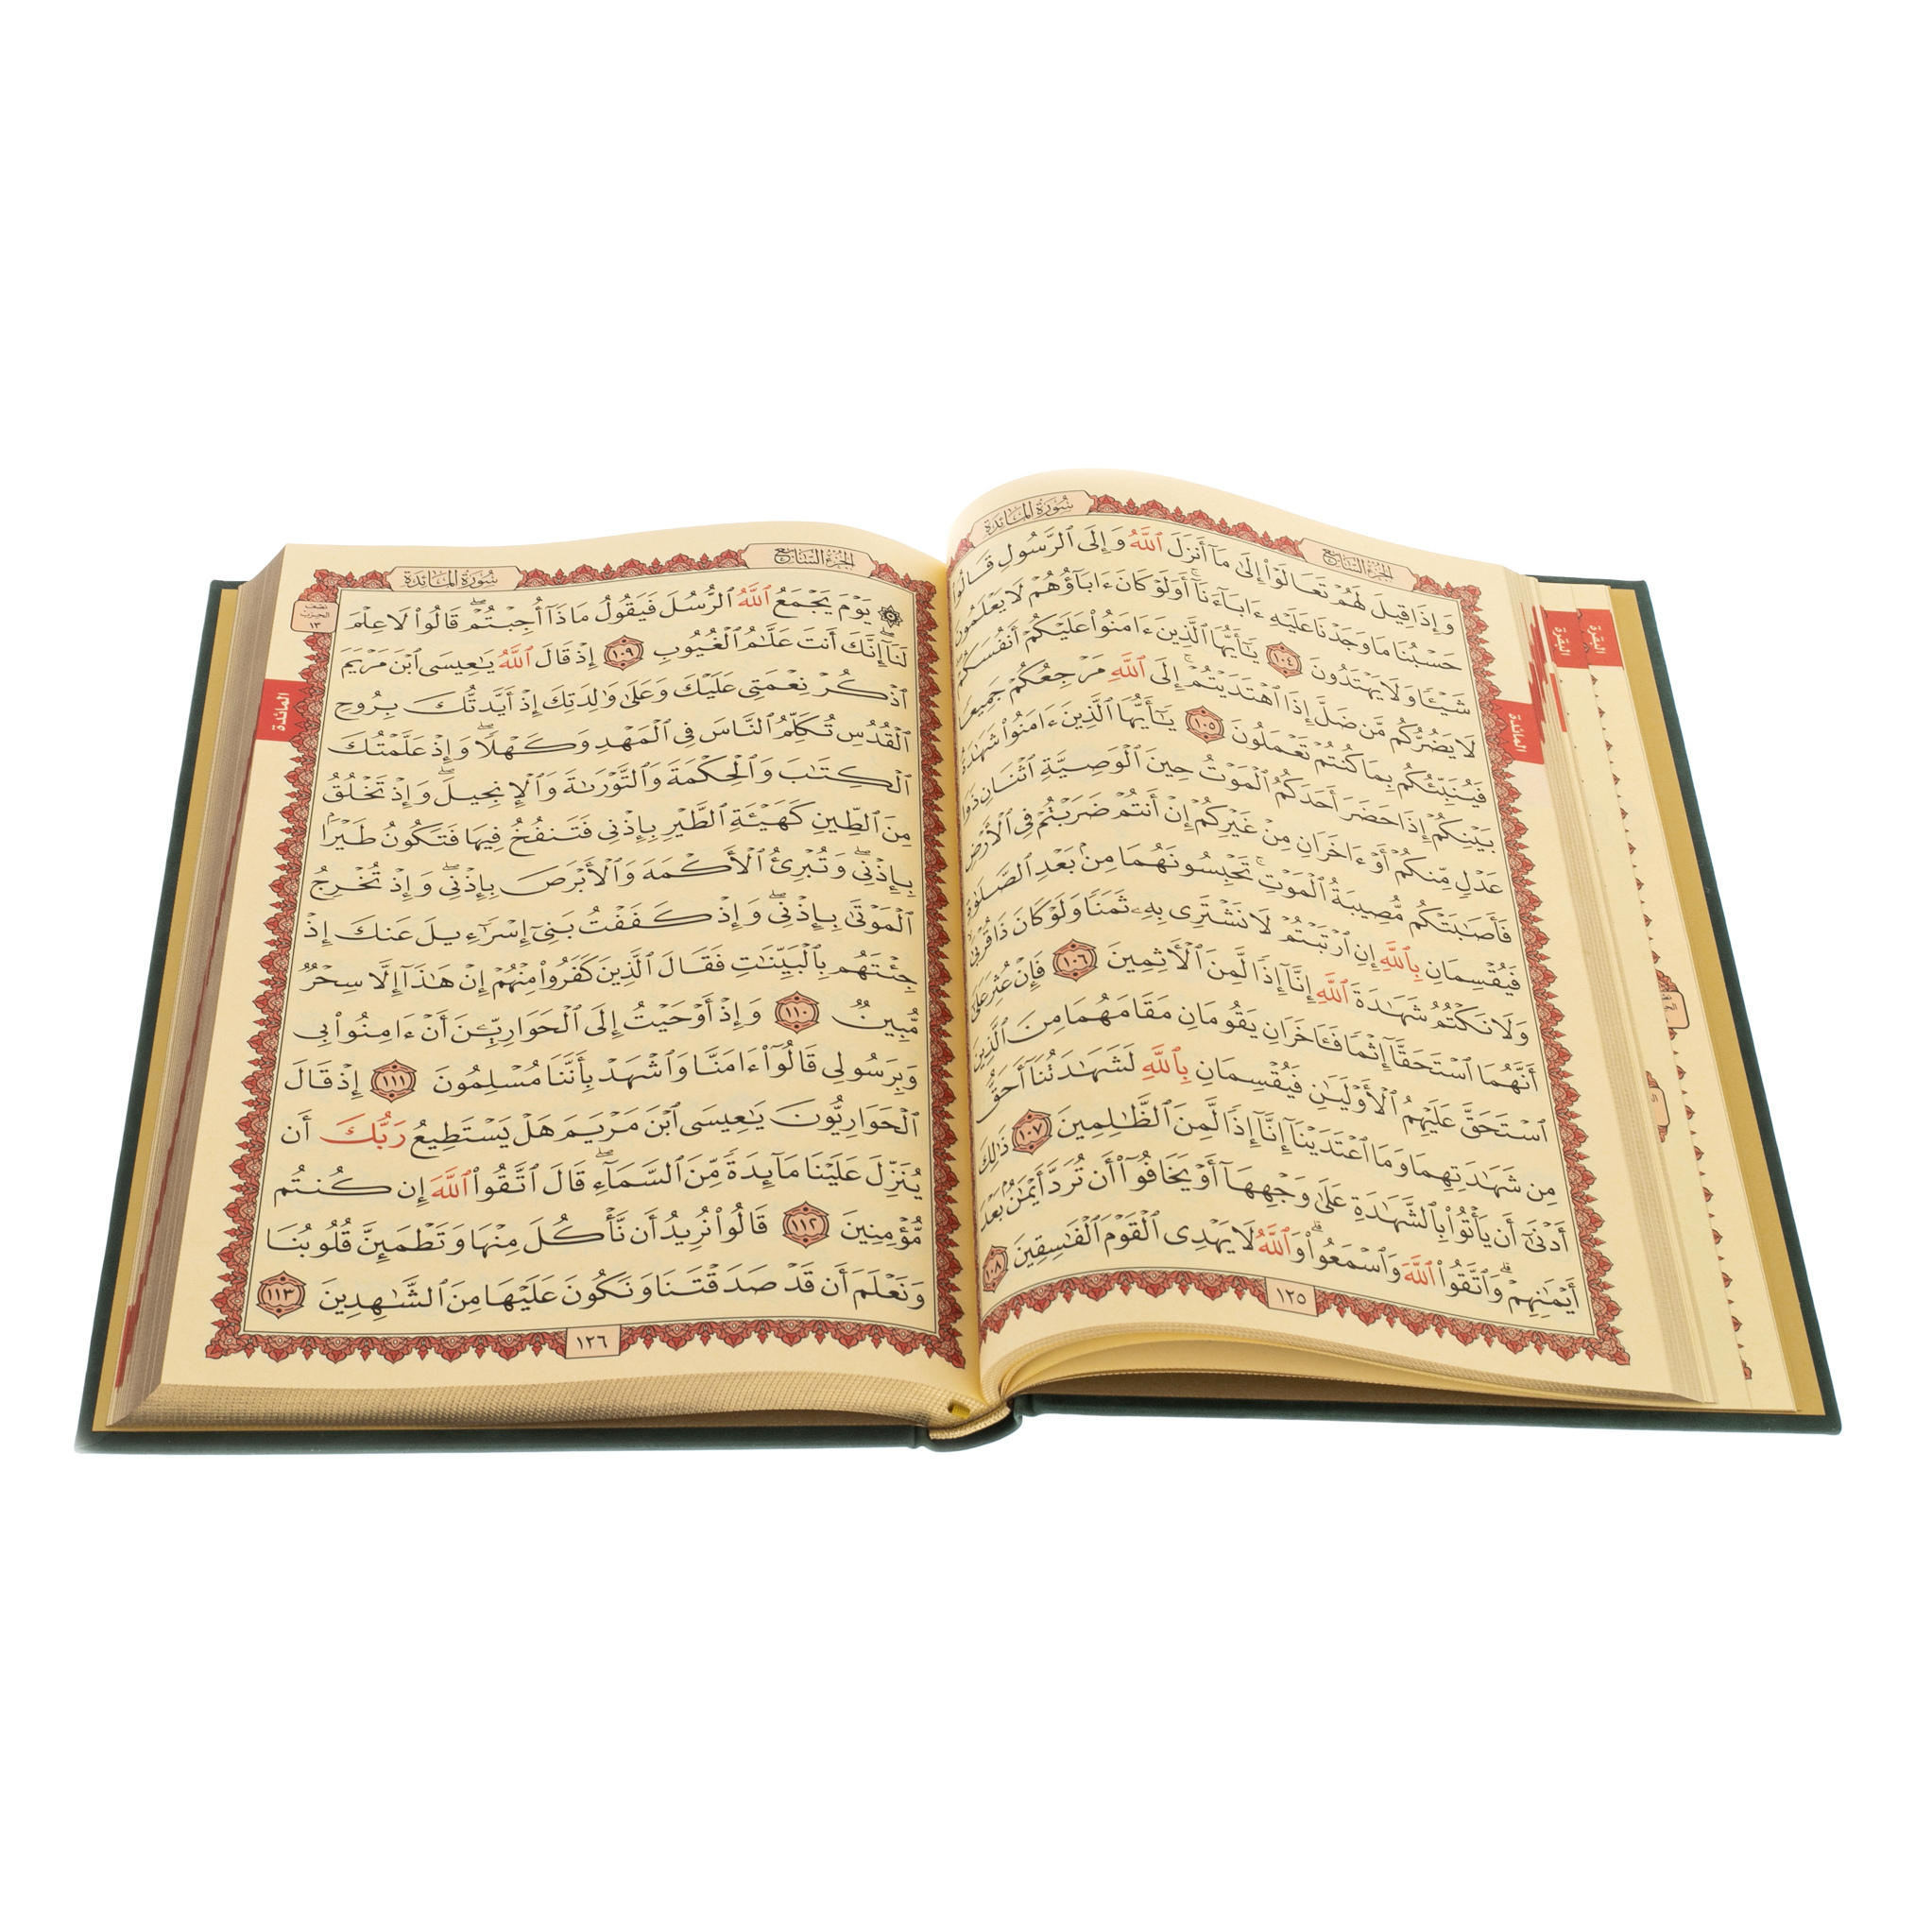 سُورَةُ المَائِدَة
الجُزءُ السَّابِعُ
وَإِذَا قِيلَ لَهُمْ تَعَالَوْا۟ إِلَىٰ مَآ أَنزَلَ ٱللَّهُ وَإِلَى ٱلرَّسُولِ قَالُوا۟
حَسْبُنَا مَا وَجَدْنَا عَلَيْهِ ءَابَآءَنَآ ۚ أَوَلَوْ كَانَ ءَابَآؤُهُمْ لَا يَعْلَمُونَ
شَيْـًٔا وَلَا يَهْتَدُونَ ١٠٤ يَـٰٓأَيُّهَا ٱلَّذِينَ ءَامَنُوا۟ عَلَيْكُمْ أَنفُسَكُمْ ۖ
لَا يَضُرُّكُم مَّن ضَلَّ إِذَا ٱهْتَدَيْتُمْ ۚ إِلَى ٱللَّهِ مَرْجِعُكُمْ جَمِيعًا
فَيُنَبِّئُكُم بِمَا كُنتُمْ تَعْمَلُونَ ١٠٥ يَـٰٓأَيُّهَا ٱلَّذِينَ ءَامَنُوا۟ شَهَـٰدَةُ
بَيْنِكُمْ إِذَا حَضَرَ أَحَدَكُمُ ٱلْمَوْتُ حِينَ ٱلْوَصِيَّةِ ٱثْنَانِ ذَوَا
عَدْلٍ مِّنكُمْ أَوْ ءَاخَرَانِ مِنْ غَيْرِكُمْ إِنْ أَنتُمْ ضَرَبْتُمْ فِى ٱلْأَرْضِ
فَأَصَـٰبَتْكُم مُّصِيبَةُ ٱلْمَوْتِ ۚ تَحْبِسُونَهُمَا مِنۢ بَعْدِ ٱلصَّلَوٰةِ
فَيُقْسِمَانِ بِٱللَّهِ إِنِ ٱرْتَبْتُمْ لَا نَشْتَرِى بِهِۦ ثَمَنًا وَلَوْ كَانَ ذَا قُرْبَىٰ ۙ
وَلَا نَكْتُمُ شَهَـٰدَةَ ٱللَّهِ إِنَّآ إِذًا لَّمِنَ ٱلْـَٔاثِمِينَ ١٠٦ فَإِنْ عُثِرَ عَلَىٰٓ
أَنَّهُمَا ٱسْتَحَقَّآ إِثْمًا فَـَٔاخَرَانِ يَقُومَانِ مَقَامَهُمَا مِنَ ٱلَّذِينَ
ٱسْتَحَقَّ عَلَيْهِمُ ٱلْأَوْلَيَـٰنِ فَيُقْسِمَانِ بِٱللَّهِ لَشَهَـٰدَتُنَآ أَحَقُّ
مِن شَهَـٰدَتِهِمَا وَمَا ٱعْتَدَيْنَآ إِنَّآ إِذًا لَّمِنَ ٱلظَّـٰلِمِينَ ١٠٧ ذَٰلِكَ
أَدْنَىٰٓ أَن يَأْتُوا۟ بِٱلشَّهَـٰدَةِ عَلَىٰ وَجْهِهَآ أَوْ يَخَافُوٓا۟ أَن تُرَدَّ أَيْمَـٰنٌۢ بَعْدَ
أَيْمَـٰنِهِمْ ۗ وَٱتَّقُوا۟ ٱللَّهَ وَٱسْمَعُوا۟ ۗ وَٱللَّهُ لَا يَهْدِى ٱلْقَوْمَ ٱلْفَـٰسِقِينَ ١٠٨
١٢٥
المائدة
البقرة
البقرة
الجُزءُ السَّابِعُ
سُورَةُ المَائِدَة
نصف
الحزب
١٣
۞ يَوْمَ يَجْمَعُ ٱللَّهُ ٱلرُّسُلَ فَيَقُولُ مَاذَآ أُجِبْتُمْ ۖ قَالُوا۟ لَا عِلْمَ
لَنَآ ۖ إِنَّكَ أَنتَ عَلَّـٰمُ ٱلْغُيُوبِ ١٠٩ إِذْ قَالَ ٱللَّهُ يَـٰعِيسَى ٱبْنَ مَرْيَمَ
ٱذْكُرْ نِعْمَتِى عَلَيْكَ وَعَلَىٰ وَٰلِدَتِكَ إِذْ أَيَّدتُّكَ بِرُوحِ
ٱلْقُدُسِ تُكَلِّمُ ٱلنَّاسَ فِى ٱلْمَهْدِ وَكَهْلًا ۖ وَإِذْ عَلَّمْتُكَ
ٱلْكِتَـٰبَ وَٱلْحِكْمَةَ وَٱلتَّوْرَىٰةَ وَٱلْإِنجِيلَ ۖ وَإِذْ تَخْلُقُ
مِنَ ٱلطِّينِ كَهَيْـَٔةِ ٱلطَّيْرِ بِإِذْنِى فَتَنفُخُ فِيهَا فَتَكُونُ طَيْرًۢا
بِإِذْنِى ۖ وَتُبْرِئُ ٱلْأَكْمَهَ وَٱلْأَبْرَصَ بِإِذْنِى ۖ وَإِذْ تُخْرِجُ
ٱلْمَوْتَىٰ بِإِذْنِى ۖ وَإِذْ كَفَفْتُ بَنِىٓ إِسْرَٰٓءِيلَ عَنكَ إِذْ
جِئْتَهُم بِٱلْبَيِّنَـٰتِ فَقَالَ ٱلَّذِينَ كَفَرُوا۟ مِنْهُمْ إِنْ هَـٰذَآ إِلَّا سِحْرٌ
مُّبِينٌ ١١٠ وَإِذْ أَوْحَيْتُ إِلَى ٱلْحَوَارِيِّـۧنَ أَنْ ءَامِنُوا۟ بِى
وَبِرَسُولِى قَالُوٓا۟ ءَامَنَّا وَٱشْهَدْ بِأَنَّنَا مُسْلِمُونَ ١١١ إِذْ قَالَ
ٱلْحَوَارِيُّونَ يَـٰعِيسَى ٱبْنَ مَرْيَمَ هَلْ يَسْتَطِيعُ رَبُّكَ أَن
يُنَزِّلَ عَلَيْنَا مَآئِدَةً مِّنَ ٱلسَّمَآءِ ۖ قَالَ ٱتَّقُوا۟ ٱللَّهَ إِن كُنتُم
مُّؤْمِنِينَ ١١٢ قَالُوا۟ نُرِيدُ أَن نَّأْكُلَ مِنْهَا وَتَطْمَئِنَّ قُلُوبُنَا
وَنَعْلَمَ أَن قَدْ صَدَقْتَنَا وَنَكُونَ عَلَيْهَا مِنَ ٱلشَّـٰهِدِينَ ١١٣
١٢٦
المائدة